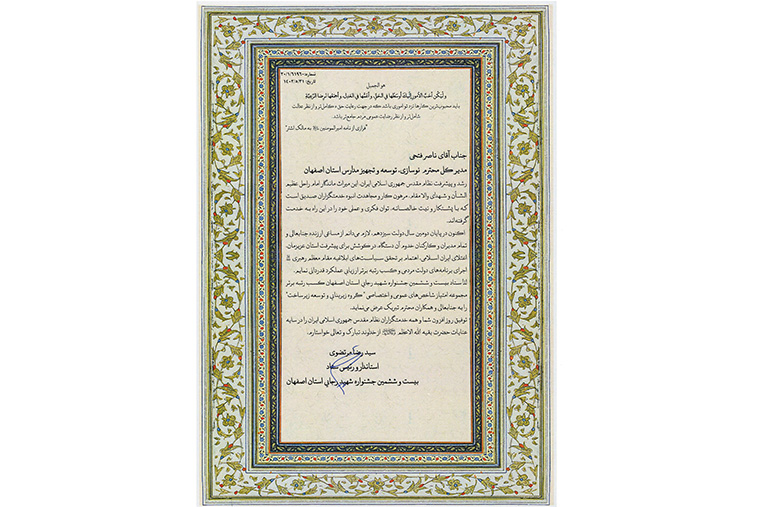 شماره: ۲۰/۱/۶۱۹۶۰
تاریخ: ۱۴۰۲/۸/۳۱
هو الجمیل
وَلیَکُن أحَبَّ الأُمورِ إلَیکَ أوسَطُها فِی الحَقِّ، وأعَمُّها فِی العَدلِ، وأجمَعُها لِرِضَا الرَّعِیَّةِ
باید محبوب‌ترین کارها نزد تو اموری باشد که در جهت رعایت حق، کامل‌تر و از نظر عدالت
شامل‌تر و از نظر رضایت عمومی مردم جامع‌تر باشد.
"فرازی از نامه امیرالمومنین به مالک اشتر"
جناب آقای ناصر فتحی
مدیر کل محترم نوسازی، توسعه و تجهیز مدارس استان اصفهان
رشد و پیشرفت نظام مقدس جمهوری اسلامی ایران، این میراث ماندگار امام راحل عظیم
الشأن و شهدای والامقام، مرهون کار و مجاهدت انبوه خدمتگزاران صدیق است
که با پشتکار و نیت خالصانه، توان فکری و عملی خود را در این راه به خدمت
گرفته‌اند.
اکنون در پایان دومین سال دولت سیزدهم، لازم می‌دانم از مساعی ارزنده جنابعالی و
تمام مدیران و کارکنان خدوم آن دستگاه، در کوشش برای پیشرفت استان عزیزمان،
اعتلای ایران اسلامی، اهتمام بر تحقق سیاست‌های ابلاغیه مقام معظم رهبری و
اجرای برنامه‌های دولت مردمی و کسب رتبه برتر ارزیابی عملکرد قدردانی نمایم.
لذا ستاد بیست و ششمین جشنواره شهید رجایی استان اصفهان کسب رتبه برتر
مجموعه امتیاز شاخص‌های عمومی و اختصاصی "گروه زیربنایی و توسعه زیرساخت"
را به جنابعالی و همکاران محترم تبریک عرض می‌نماید.
توفیق روز افزون شما و همه خدمتگزاران نظام مقدس جمهوری اسلامی ایران را در سایه
عنایات حضرت بقیه الله الاعظم از خداوند تبارک و تعالی خواستارم.
سید رضا مرتضوی
استاندار و رئیس ستاد
بیست و ششمین جشنواره شهید رجایی استان اصفهان